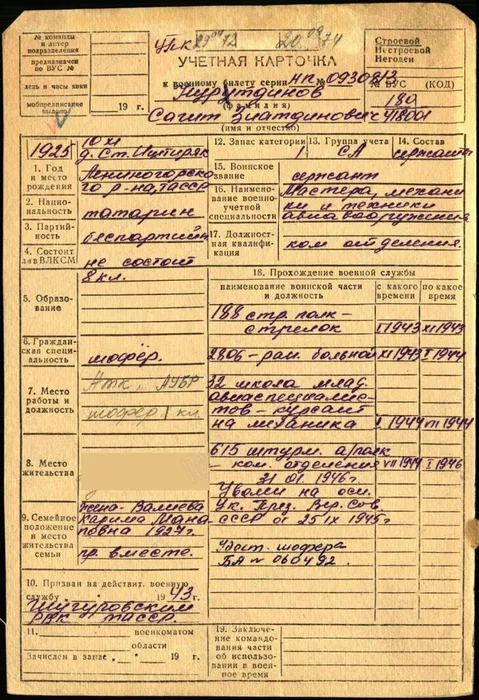 № команды
и литер
подразделения
предназначен
по ВУС №
день и часы явки
мобпредписание
выдано
19 г.
УПК 29 04 72 20 09 74
Строевой
Нестроевой
Негоден
УЧЕТНАЯ КАРТОЧКА
к военному билету серии НК № 0930813
№ ВУС (КОД)
Нурутдинов
180
(фамилия)
Сагит Зиатдинович
(имя и отчество)
1925
10 XI
д. Ст. Иштиряк
Лениногорско
го р-на, ТАССР
1. Год
и место
рождения
2. Нацио-
нальность
татарин
3. Партий-
ность
беспартийн
4. Состоит
ли в ВЛКСМ
не состоит
5. Образо-
вание
8 кл.
6. Граждан-
ская специ-
альность
шофёр.
7. Место
работы и
должность
АТК, АУБР
шофёр I кл
8. Место
жительства
9. Семейное
положение
и место
жительства
семьи
жена - Валиева
Карима Мана
повна 1927г.
пр. вместе.
10. Призван на действит. военную
службу 1943 г.
Шугуровским
РВК ТАССР.
11. военкоматом
области
Зачислен в запас 19 г.
12. Запас категории
1
13. Группа учета
СА
14. Состав
сержанты
15. Воинское
звание
сержант
16. Наимено-
вание военно-
учетной
специальности
Мастера, механи
ки и техники
авиавооружения
17. Должност-
ная квалифи-
кация
ком отделения.
18. Прохождение военной службы
наименование воинской части
и должность
с какого
времени
по какое
время
188 стр. полк -
стрелок I 1943 XI 1943
2806 - ран. больной XI 1943 I 1944
32 школа млад.
авиаспециалис-
тов - курсант
на механика I 1944 VII 1944
615 штурм. а/полк
- ком. отделения VII 1944 I 1946
31 01. 1946г.
Уволен на осн.
Ук. През. Вер. Сов
СССР от 25 IX 1945г
Удост. шофера
БА № 060492.
19. Заключение
командования части
об использовании
в воен-
ное время